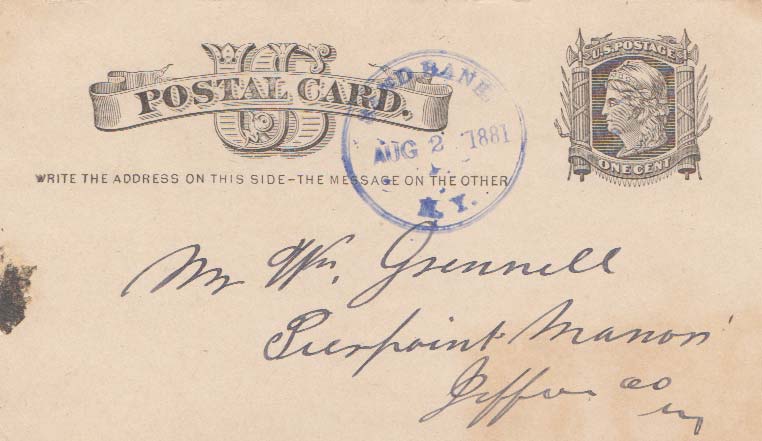 US
POSTAL CARD.
U.S. POSTAGE
ONE CENT
AUG 2 1881
N.Y.
WRITE THE ADDRESS ON THIS SIDE-THE MESSAGE ON THE OTHER
Mr Wm. Grennell
Pierpoint Manor
Jeffer co